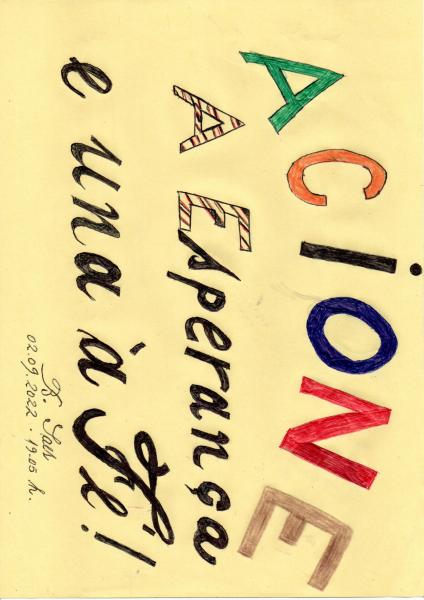 ACiONE
A Esperança
e una à Fé!
B. Sales
02.09.2022 · 19.05 h.